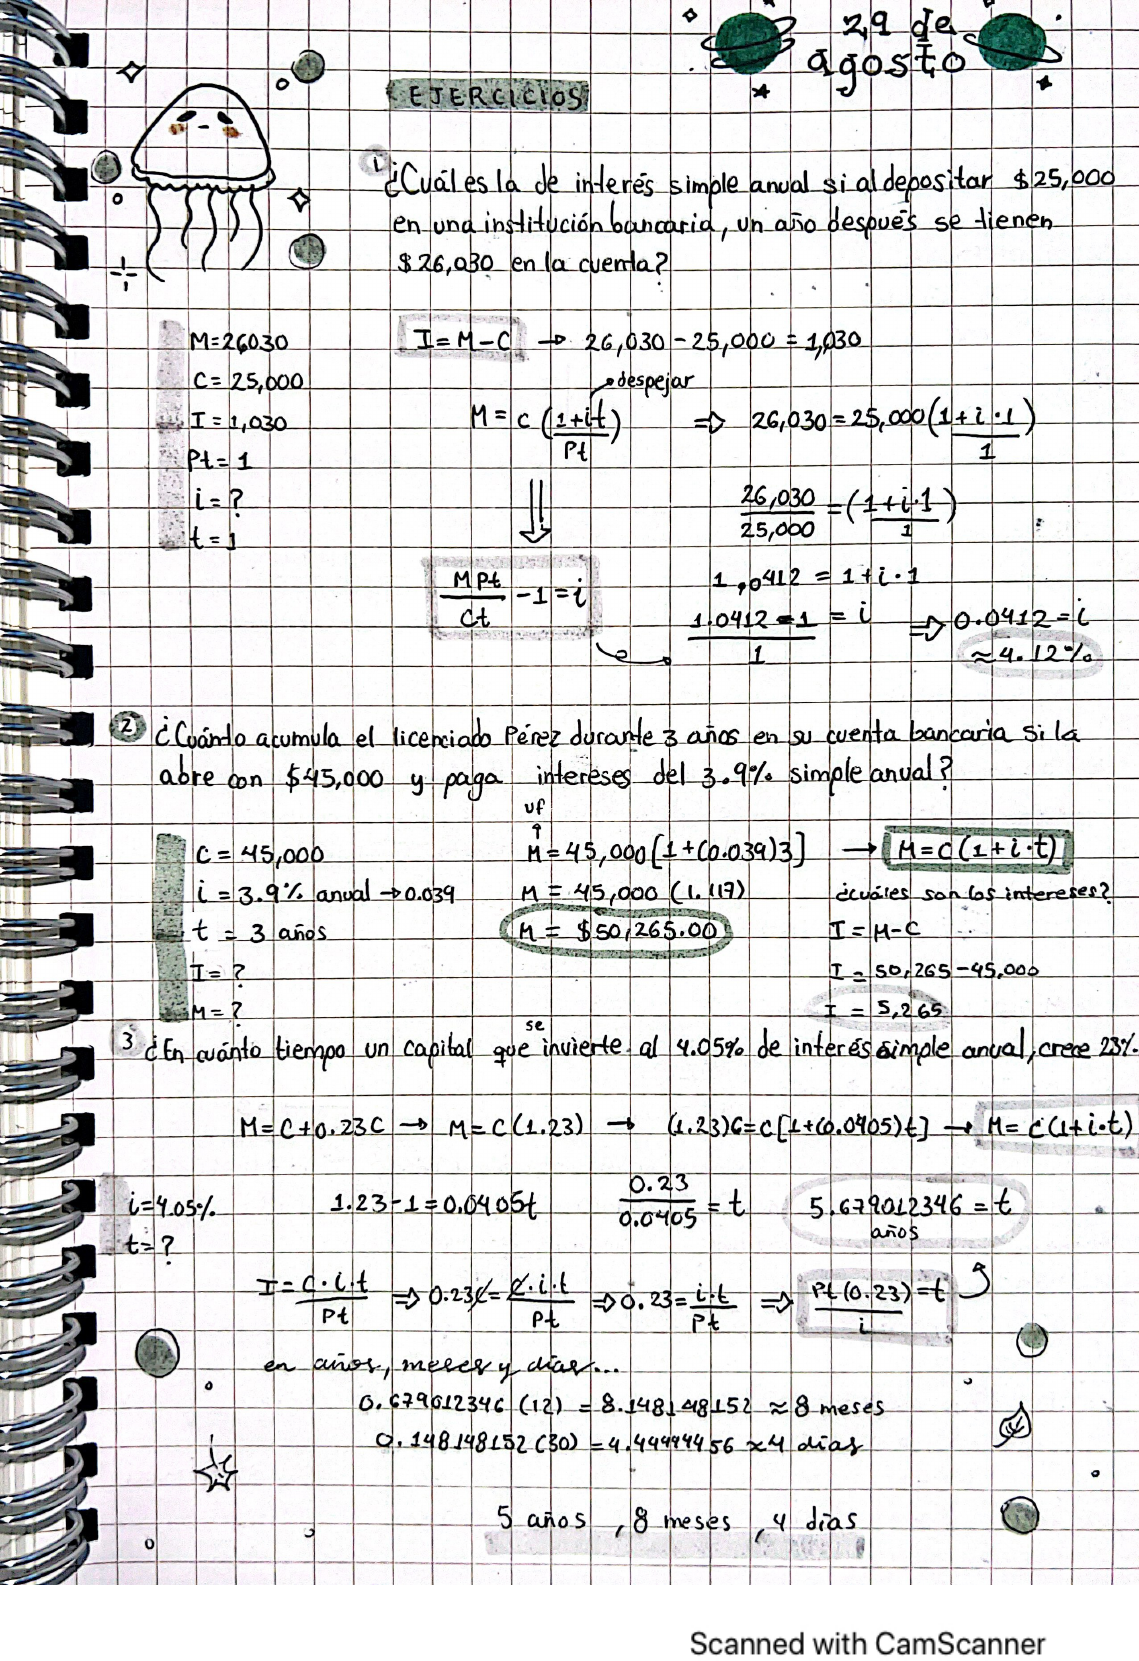 29 de
agosto
EJERCICIOS
1 ¿Cuál es la de interés simple anual si al depositar $25,000
en una institución bancaria, un año después se tienen
$26,030 en la cuenta?
M=26030
C=25,000
I=1,030
Pt=1
i=?
t=1
I=M-C → 26,030-25,000=1,030
despejar
M= c (1+it/Pt) ⇒ 26,030=25,000(1+i·1/1)
26,030/25,000=(1+i·1/1)
MPt/Ct -1=i
1,0412 = 1+i·1
1.0412-1/1 = i ⇒ 0.0412=i
≈4.12%
2 ¿Cuánto acumula el licenciado Pérez durante 3 años en su cuenta bancaria si la
abre con $45,000 y paga intereses del 3.9% simple anual?
C=45,000
i=3.9% anual→0.039
t=3 años
I=?
M=?
vf
↑
M=45,000[1+(0.039)3] → M=C(1+i·t)
M=45,000(1.117)
M= $50,265.00
¿cuáles son los intereses?
I=M-C
I=50,265-45,000
I = 5,265
3 ¿En cuánto tiempo un capital que se invierte al 4.05% de interés simple anual, crece 23%.
M=C+0.23C → M=C(1.23) → (1.23)C=C[1+(0.0405)t] → M=C(1+i·t)
i=4.05%
t=?
1.23-1=0.0405t 0.23/0.0405=t 5.679012346=t
años
I=C·i·t/Pt ⇒ 0.23C=C·i·t/Pt ⇒ 0.23=i·t/Pt ⇒ Pt(0.23)/i=t
en años, meses y días...
0.679012346 (12) = 8.148148152 ≈ 8 meses
0.148148152(30) = 4.44444456 ≈4 días
5 años , 8 meses , 4 días
Scanned with CamScanner